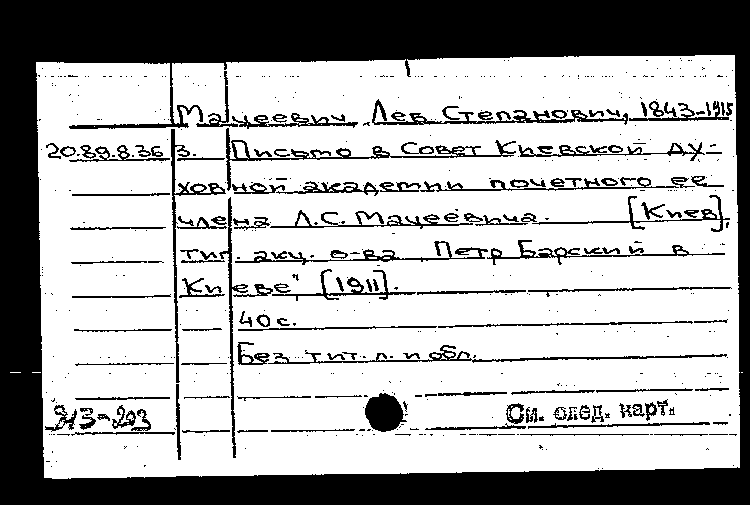 Мацеевич, Лев Степанович, 1843-1915
20.89.8.36 3. Письмо в Совет Киевской ду-
ховной академии почетного ее
члена Л.С. Мацеевича. [Киев],
тип. акц. о-ва „Петр Барский в
Киеве", [1911].
40 с.
Без тит. л. и обл.
См. след. карт.